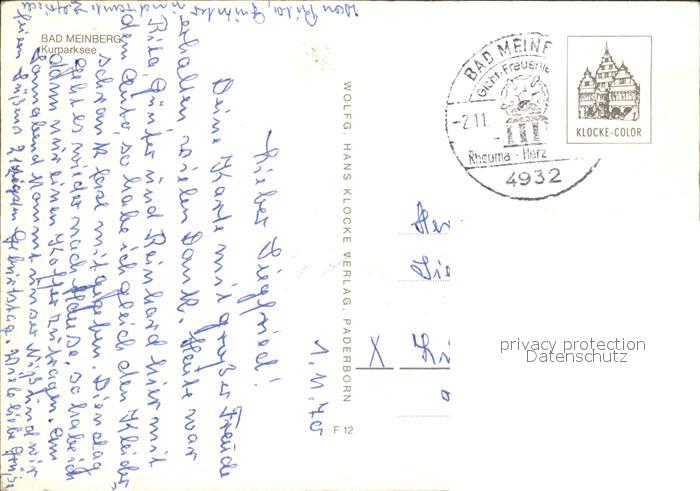 BAD MEINBERG
Kurparksee
1. 11. 70
Lieber Siegfried!
Deine Karte mit großer Freude
erhalten vielen Dank. Heute war
Rita, Günter und Reinhard hier mit
dem Auto, so habe ich gleich den Kleider
schrank fast mitgegeben. Dienstag
geht es wieder nach Hause, so habe ich
dann nur einen Koffer zu tragen. Am
Sonnabend kommt unser und wir
feiern Geburtstag. Viele liebe Grüße
von Rita, Günter und
WOLFG. HANS KLOCKE VERLAG, PADERBORN
F 12
BAD MEINB
Gicht-Frauenle
-2.11.
Rheuma-Herz
4932
KLOCKE-COLOR
Her
X
privacy protection
Datenschutz